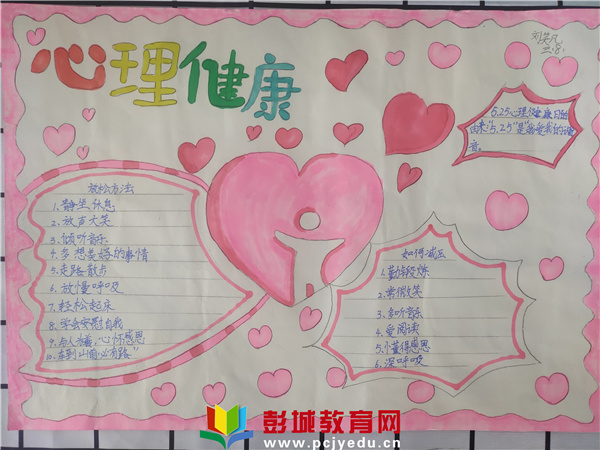 心理健康
刘英凡
5.25心理健康日的
由来"5.25"是"我爱我"的谐
音。
放松方法
1、静坐休息
2、放声大笑
3、倾听音乐
4、多想美好的事情
5、走路散步
6、放慢呼吸
7、轻松起床
8、学会安慰自我
9、与人为善,心怀感恩
如何减压
1、勤锻炼
2、常微笑
3、多听音乐
4、爱阅读
5、懂得感恩
6、深呼吸
彭城教育网
www.pcjyedu.cn